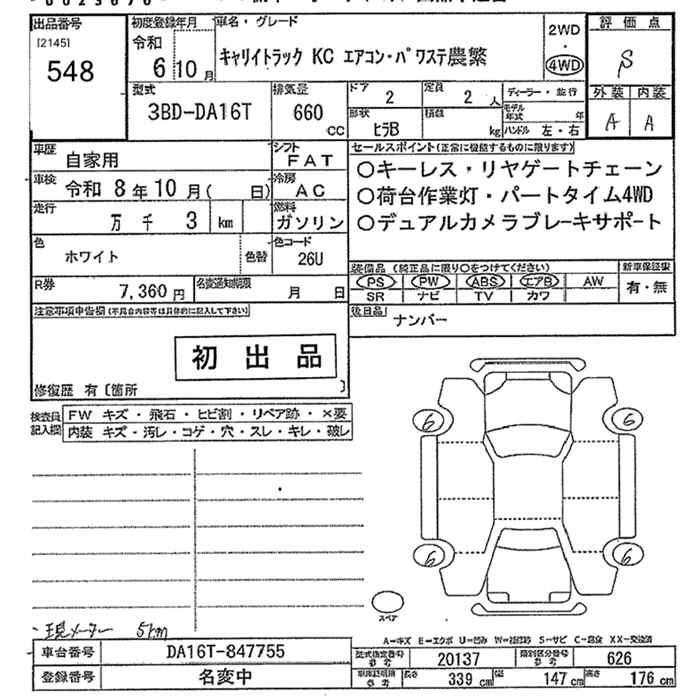 出品番号
[2145]
548
初度登録年月
令和
6 10 月
車名・グレード
キャリイトラック KC エアコン・パワステ農繁
2WD
・
4WD
評価点
S
外装 内装
A A
型式
3BD-DA16T
排気量
660
CC
ドア
2
定員
2 人
形状
ヒラB
積載
kg
ディーラー・並行
モデル年式 年
ハンドル 左・右
車歴
自家用
シフト
FAT
車検
令和 8年10月( 日)
冷房
AC
走行
万 千 3 km
燃料
ガソリン
色
ホワイト
色替
色コード
26U
R券
7,360円
名変通知期限
月 日
セールスポイント(正常に機能するものに限ります)
○キーレス・リヤゲートチェーン
○荷台作業灯・パートタイム4WD
○デュアルカメラブレーキサポート
装備品(純正品に限り○をつけてください)
PS PW ABS エアB AW
SR ナビ TV カワ
新車保証書
有・無
後日品
ナンバー
注意事項申告欄(不具合内容等は具体的に記入して下さい)
初出品
修復歴 有〔箇所 〕
検査員記入欄
FW キズ・飛石・ヒビ割・リペア跡・×要
内装 キズ・汚レ・コゲ・穴・スレ・キレ・破レ
6 6
6 6
スペア
・現メーター 5km
A-キズ E-エクボ U-凹み W-補修跡 S-サビ C-腐食 XX-交換済
車台番号
DA16T-847755
登録番号
名変中
型式指定番号
参考
20137
類別区分番号
参考
626
車庫証明用
参考
長さ 339 cm 幅 147 cm 高さ 176 cm